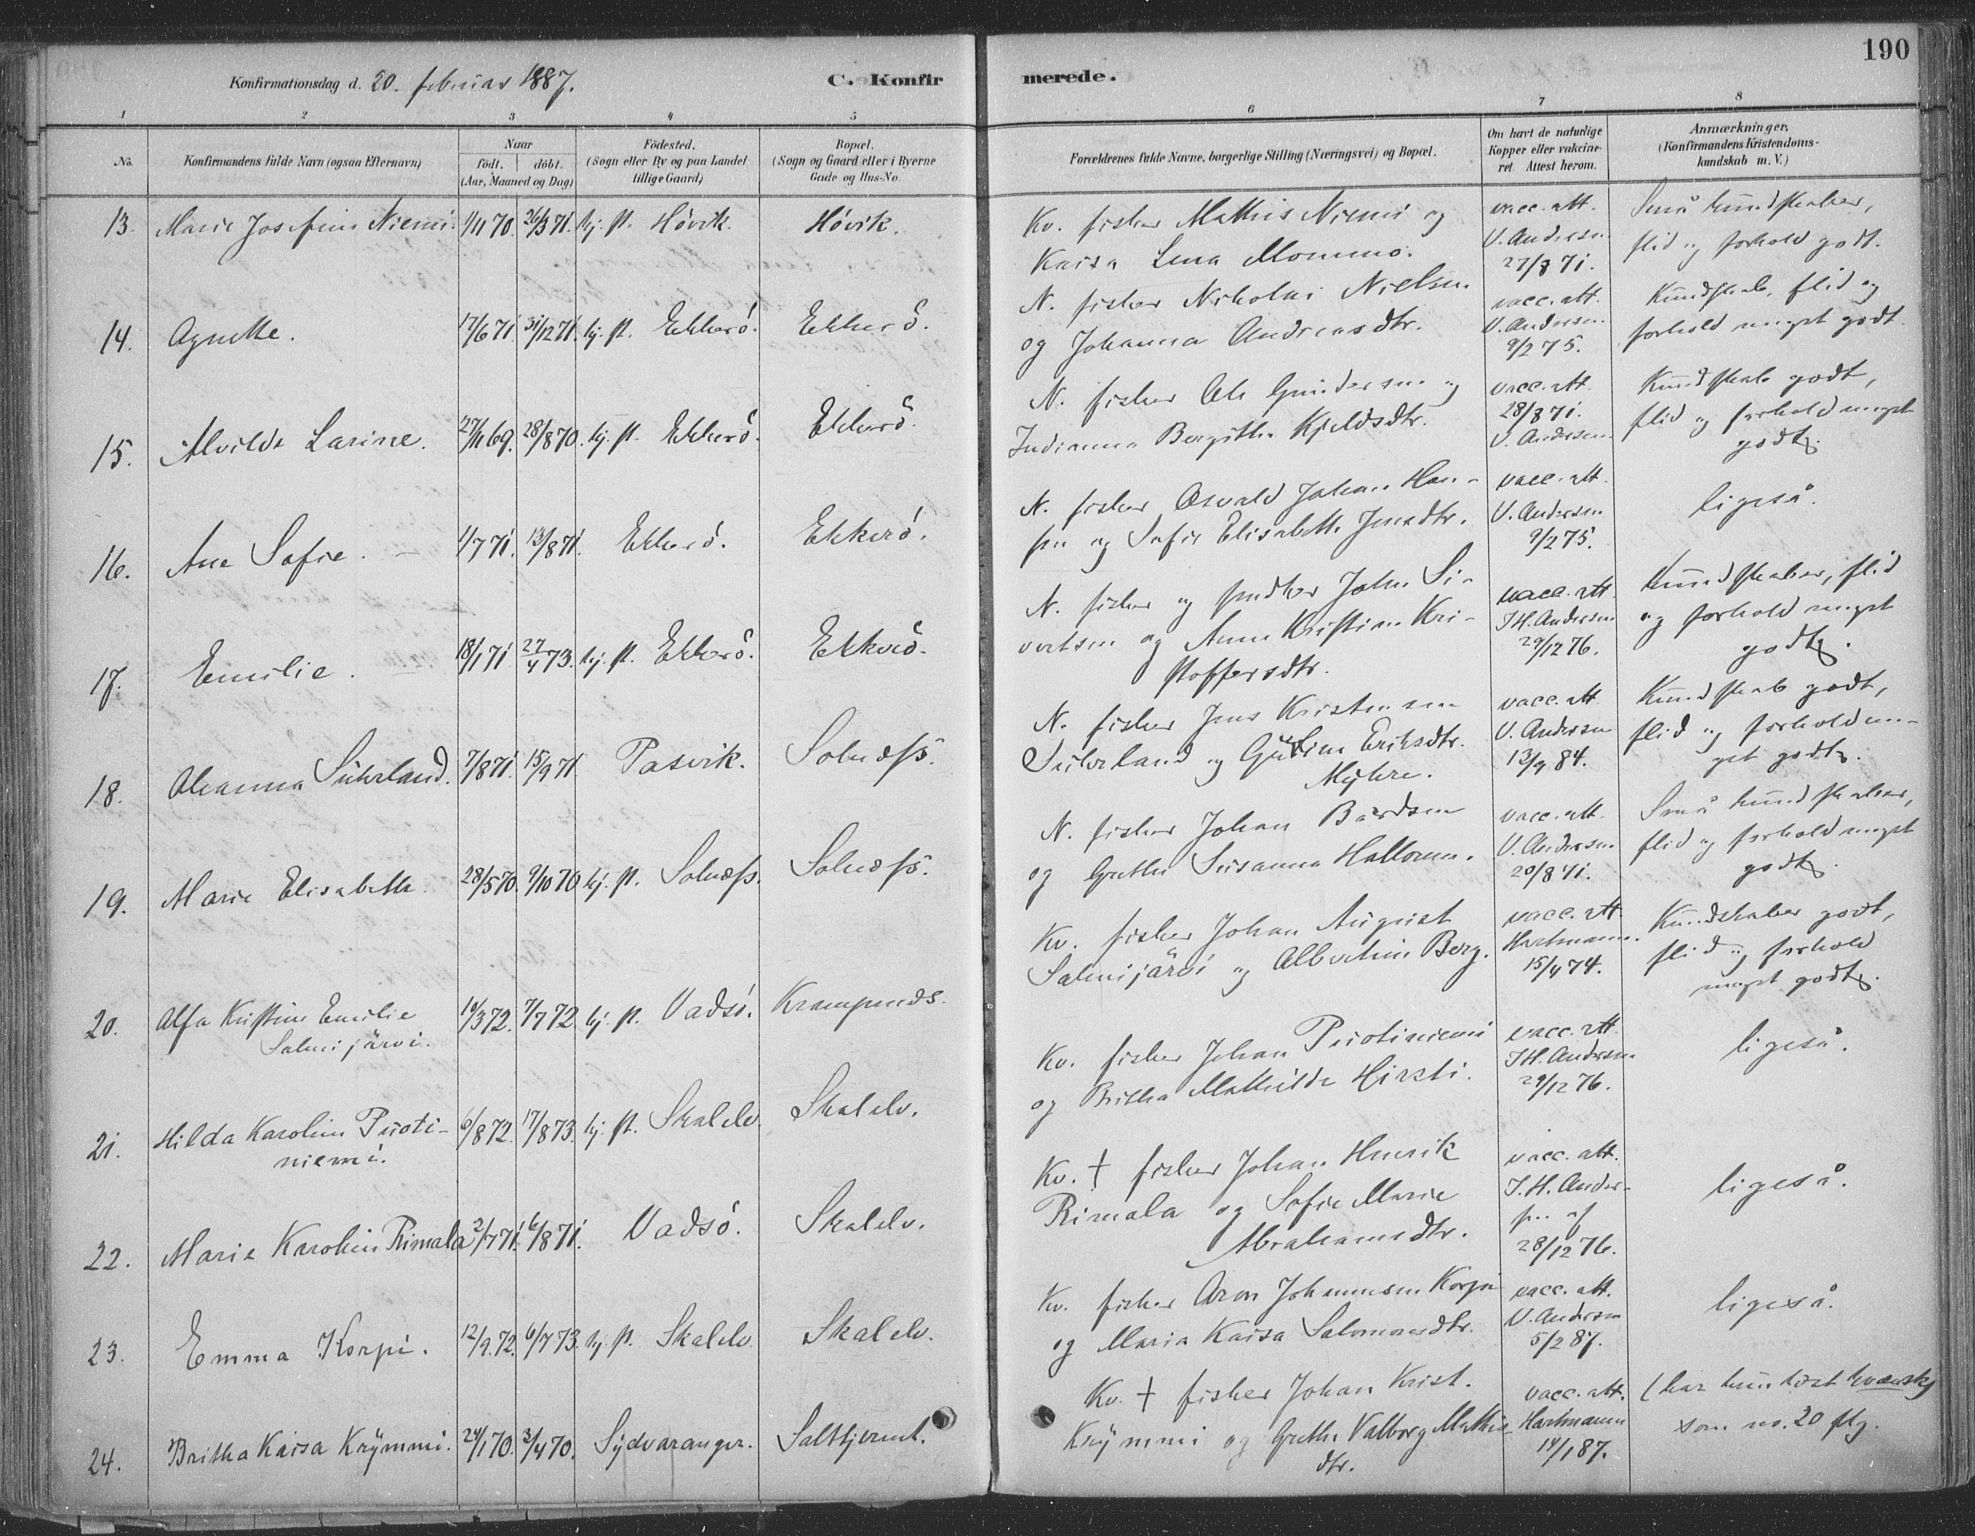 190
Konfirmationsdag d. 20. februar 1887.
C. Konfirmerede.
1 2 3 4 5 6 7 8
No.
Konfirmandens fulde Navn (ogsaa Efternavn)
Naar
født. døbt.
(Aar, Maaned og Dag)
Födested.
(Sogn eller By og paa Landet
tillige Gaard)
Bopæl.
(Sogn og Gaard eller i Byerne
Gade og Hus-No.
Forældrenes fulde Navne, borgerlige Stilling (Næringsvei) og Bopæl.
Om havt de naturlige
Kopper eller vakcine-
ret. Attest herom.
Anmærkninger.
(Konfirmandens Kristendoms-
kundskab m. V.)
13. Marie Josefine Niemi. 1/11 70. 26/3 71. hj. st. Høvik. Høvik.
Kv. fisker Mathis Niemi og
Kaisa Lena Mommo.
vacc. att.
U. Andersen
27/8 71.
Små kundskaber,
flid og forhold godt.
14. Agnethe. 17/6 71. 31/12 71. hj. st. Ekkerö. Ekkerö.
N. fisker Nikolai Nielsen
og Johanna Andreasdtr.
vacc. att.
U. Andersen
9/2 75.
Kundskab, flid og
forhold meget godt.
15. Alvilde Larine. 27/11 69. 28/8 70. hj. st. Ekkerö. Ekkerö.
N. fisker Ole Gundersen og
Indianna Bergithe Kjeldsdtr.
vacc. att.
28/8 71.
U. Andersen
Kundskab godt,
flid og forhold meget
godt.
16. Ane Sofie. 1/7 71. 13/8 71. Ekkerö. Ekkerö.
N. fisker Osvald Johan Han-
sen og Sofie Elisabeth Jensdtr.
vacc. att.
U. Andersen
9/2 75.
ligeså.
17. Emilie. 18/1 71. 27/4 73. hj. st. Ekkerö. Ekkerö.
N. fisker og snedker John Si-
vertsen og Anne Kristine Kri-
stoffersdtr.
vacc. att.
J H. Andersen
29/12 76.
Kundskaber, flid
og forhold meget
godt.
18. Oleanna Suhrland. 7/8 71. 15/9 71. Pasvik. Solnæss.
N. fisker Jens Kristensen
Suhrland og Gurine Eriksdtr.
Myhre.
vacc. att.
U. Andersen
13/9 84.
Kundskab godt,
flid og forhold me-
get godt.
19. Marie Elisabeth. 28/5 70. 9/10 70. hj. st. Solnæss. Solnæss.
N. fisker Johan Bærdsen
og Grethe Susanna Hallonen.
vacc. att.
U. Andersen
20/8 71.
Små kundskaber,
flid og forhold meget
godt.
20. Alfa Kristine Emilie
Salmijärvi. 10/3 72. 7/7 72. hj. st. Vadsö. Krampenæs.
Kv. fisker Johan August
Salmijärvi og Albertine Berg.
vacc. att.
Hartmann.
15/4 74.
Kundskaber godt,
flid og forhold
meget godt.
21. Hilda Karoline Puoti-
niemi. 6/8 72. 17/8 73. hj. st. Skalelv. Skalelv.
Kv. fisker Johan Puotiniemi
og Britha Mathilde Hirsti.
vacc. att.
J H. Andersen
29/12 76.
ligeså.
22. Marie Karoline Rimala 2/7 71. 6/8 71. Vadsö. Skalelv.
Kv. † fisker Johan Henrik
Rimala og Sofie Marie
Abrahamsdtr.
vacc. att.
J. H. Ander-
sen af
28/12 76.
ligeså.
23. Emma Korpi. 12/9 72. 6/7 73. hj. st. Skalelv. Skalelv.
Kv. fisker Aron Johannesen Korpi
og Maria Kaisa Salomonsdtr.
vacc. att.
U. Andersen
5/2 87.
ligeså.
24. Britha Kaisa Krymmi. 24/1 70. 3/4 70. Sydvaranger. Saltkjernet.
Kv. † fisker Johan Krist.
Krymmi og Grethe Valborg Mathis-
dtr.
vacc. att.
Hartmann
14/1 87.
(har kun læst kvænsk)
som no. 20 flg.